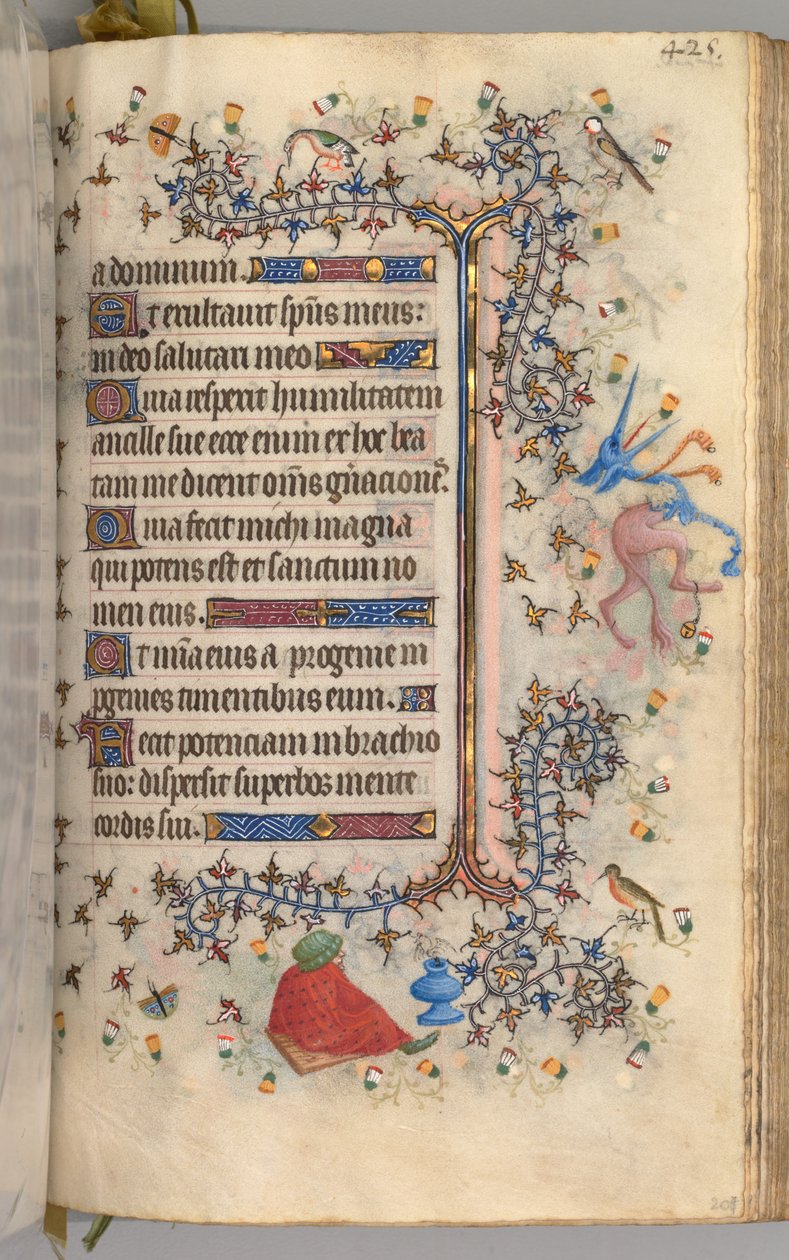 425.
a dominum.
Et exultavit sp̄us meus:
in deo salutari meo
Quia respexit humilitatem
ancille sue ecce enim ex hoc bea
tam me dicent om̄s gn̄acionēs.
Quia fecit michi magna
qui potens est et sanctum no
men eius.
Et mīa eius a progenie in
pgenies timentibus eum.
Fecit potenciam in brachio
suo: dispersit superbos mente
cordis sui.